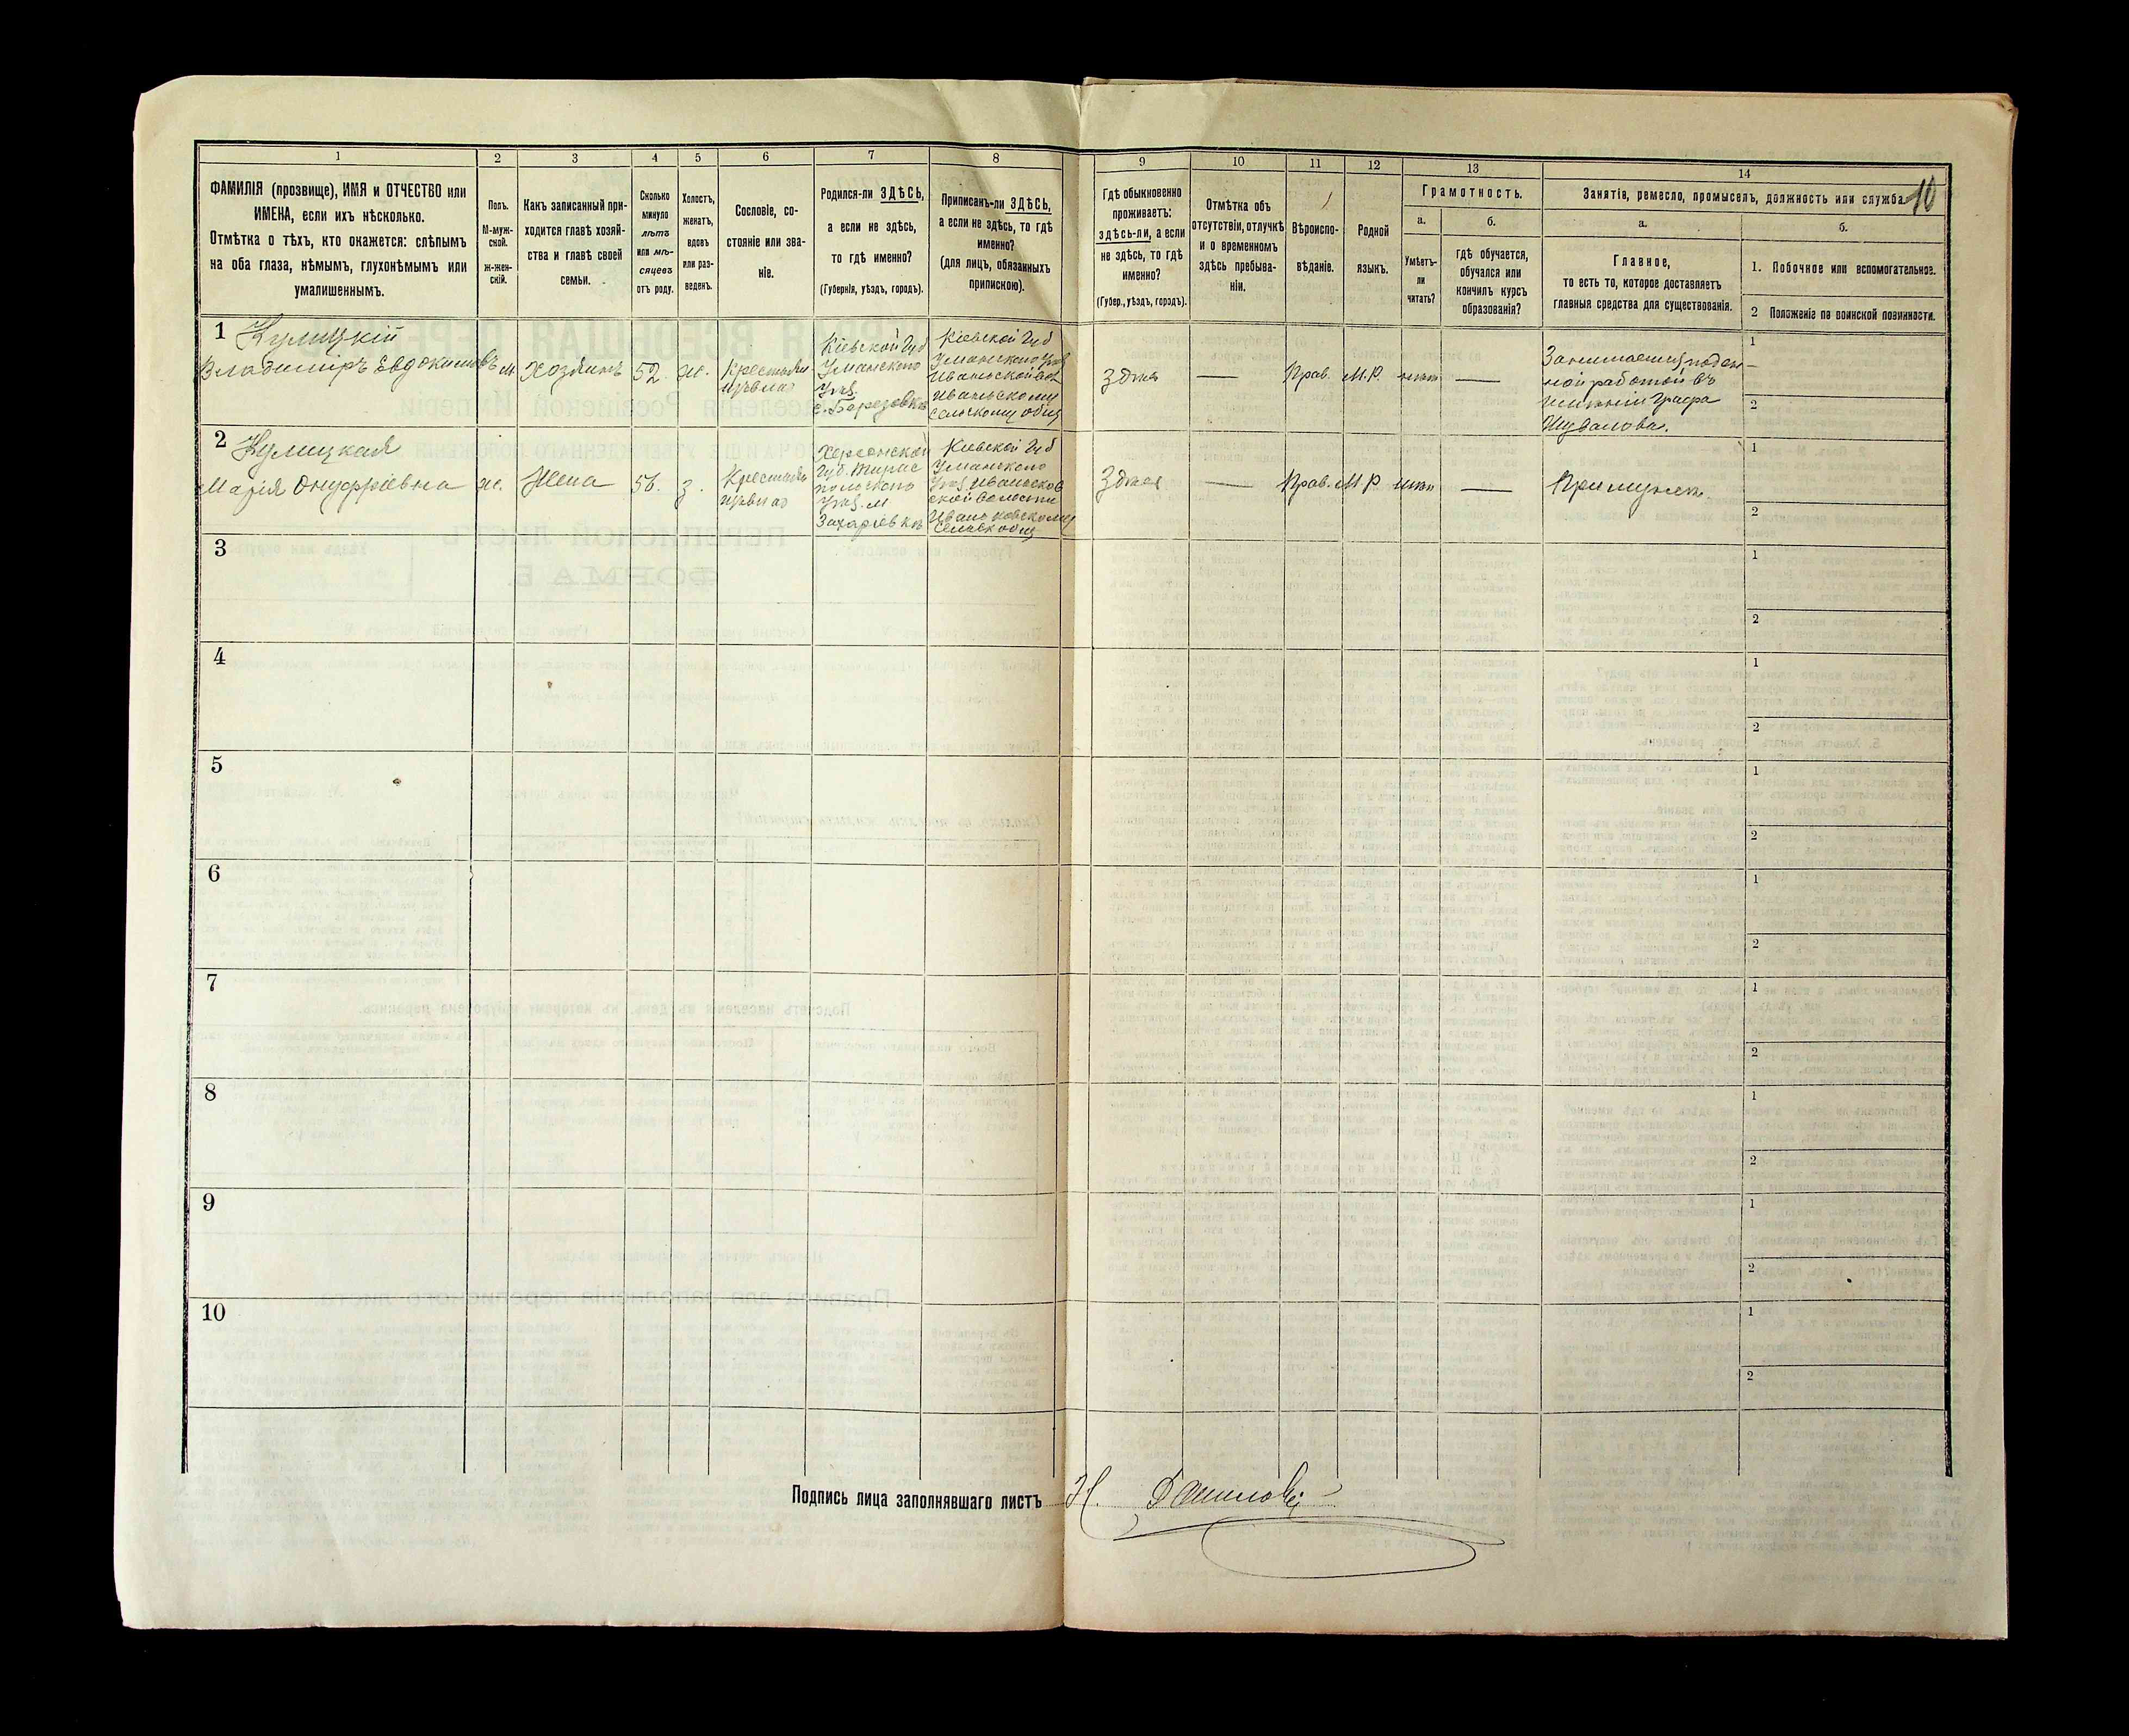 1 2 3 4 5 6 7 8 9 10 11 12 13 14
ФАМИЛІЯ (прозвище), ИМЯ и ОТЧЕСТВО или
ИМЕНА, если ихъ нѣсколько.
Отмѣтка о тѣхъ, кто окажется: слѣпымъ
на оба глаза, нѣмымъ, глухонѣмымъ или
умалишеннымъ.
Полъ.
М-муж-
ской.
ж-жен-
скій.
Какъ записанный при-
ходится главѣ хозяй-
ства и главѣ своей
семьи.
Сколько
минуло
лѣтъ
или мѣ-
сяцевъ
отъ роду.
Холостъ,
женатъ,
вдовъ
или раз-
веденъ.
Сословіе, со-
стояніе или зва-
ніе.
Родился-ли ЗДѢСЬ,
а если не здѣсь,
то гдѣ именно?
(Губернія, уѣздъ, городъ).
Приписанъ-ли ЗДѢСЬ,
а если не здѣсь, то гдѣ
именно?
(для лицъ, обязанныхъ
припискою).
Гдѣ обыкновенно
проживаетъ:
здѣсь-ли, а если
не здѣсь, то гдѣ
именно?
(Губер., уѣздъ, городъ).
Отмѣтка объ
отсутствіи, отлучкѣ
и о временномъ
здѣсь пребыва-
ніи.
Вѣроиспо-
вѣданіе.
Родной
языкъ.
Грамотность.
а.
Умѣетъ-
ли
читать?
б.
гдѣ обучается,
обучался или
кончилъ курсъ
образованія?
Занятія, ремесло, промыселъ, должность или служба.
10
а.
Главное,
то есть то, которое доставляетъ
главныя средства для существованія.
б.
1. Побочное или вспомогательное.
2 Положеніе по воинской повинности.
1 Кулицкій
Владиміръ Евдокимовъ
м
Хозяинъ
52.
ж.
Крестьян
изъ влад
Кіевской Губ
Уманского
Уѣз.
с. Березовка
Кіевской Губ
Уманского Уѣз
Иваньской Вол
Иваньскому
Сельскому общ
Здѣсь
—
Прав.
М.Р.
—
Занимается поден
ной работой въ
имѣніи Графа
Шувалова.
1 —
2
2 Кулицкая
Марія Онуфріевна
ж.
Жена
56.
з.
Крестьян
изъ влад
Херсонской
Губ. Тирас
польского
Уѣз. м
Захаріевкѣ
Кіевской Губ
Уманского
Уѣз Иваньков
ской Волости
Иваньковскому
Сельск общ
Здѣсь
—
Прав.
М.Р
—
При мужѣ.
1
2
3
1
2
4
1
2
5
1
2
6
1
2
7
1
2
8
1
2
9
1
2
10
1
2
Подпись лица заполнявшаго листъ Н.